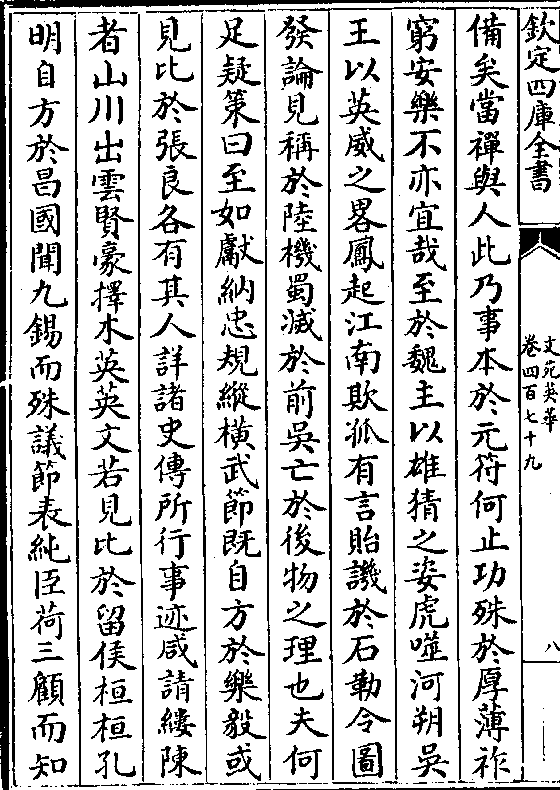 欽定四庫全書
文苑英華
卷四百七十九
八
備矣當禪與人此乃事本於元符何止功殊於厚薄祚
窮安樂不亦宜哉至於魏主以雄猜之姿虎噬河朔吳
王以英威之畧鳳起江南欺孤有言貽譏於石勒令圖
發論見稱於陸機蜀滅於前吳亡於後物之理也夫何
足疑策曰至如獻納忠規縱橫武節既自方於樂毅或
見比於張良各有其人詳諸史傳所行事迹咸請縷陳
者山川出雲賢豪擇木英英文若見比於留侯桓桓孔
明自方於昌國聞九錫而殊議節表純臣荷三顧而知